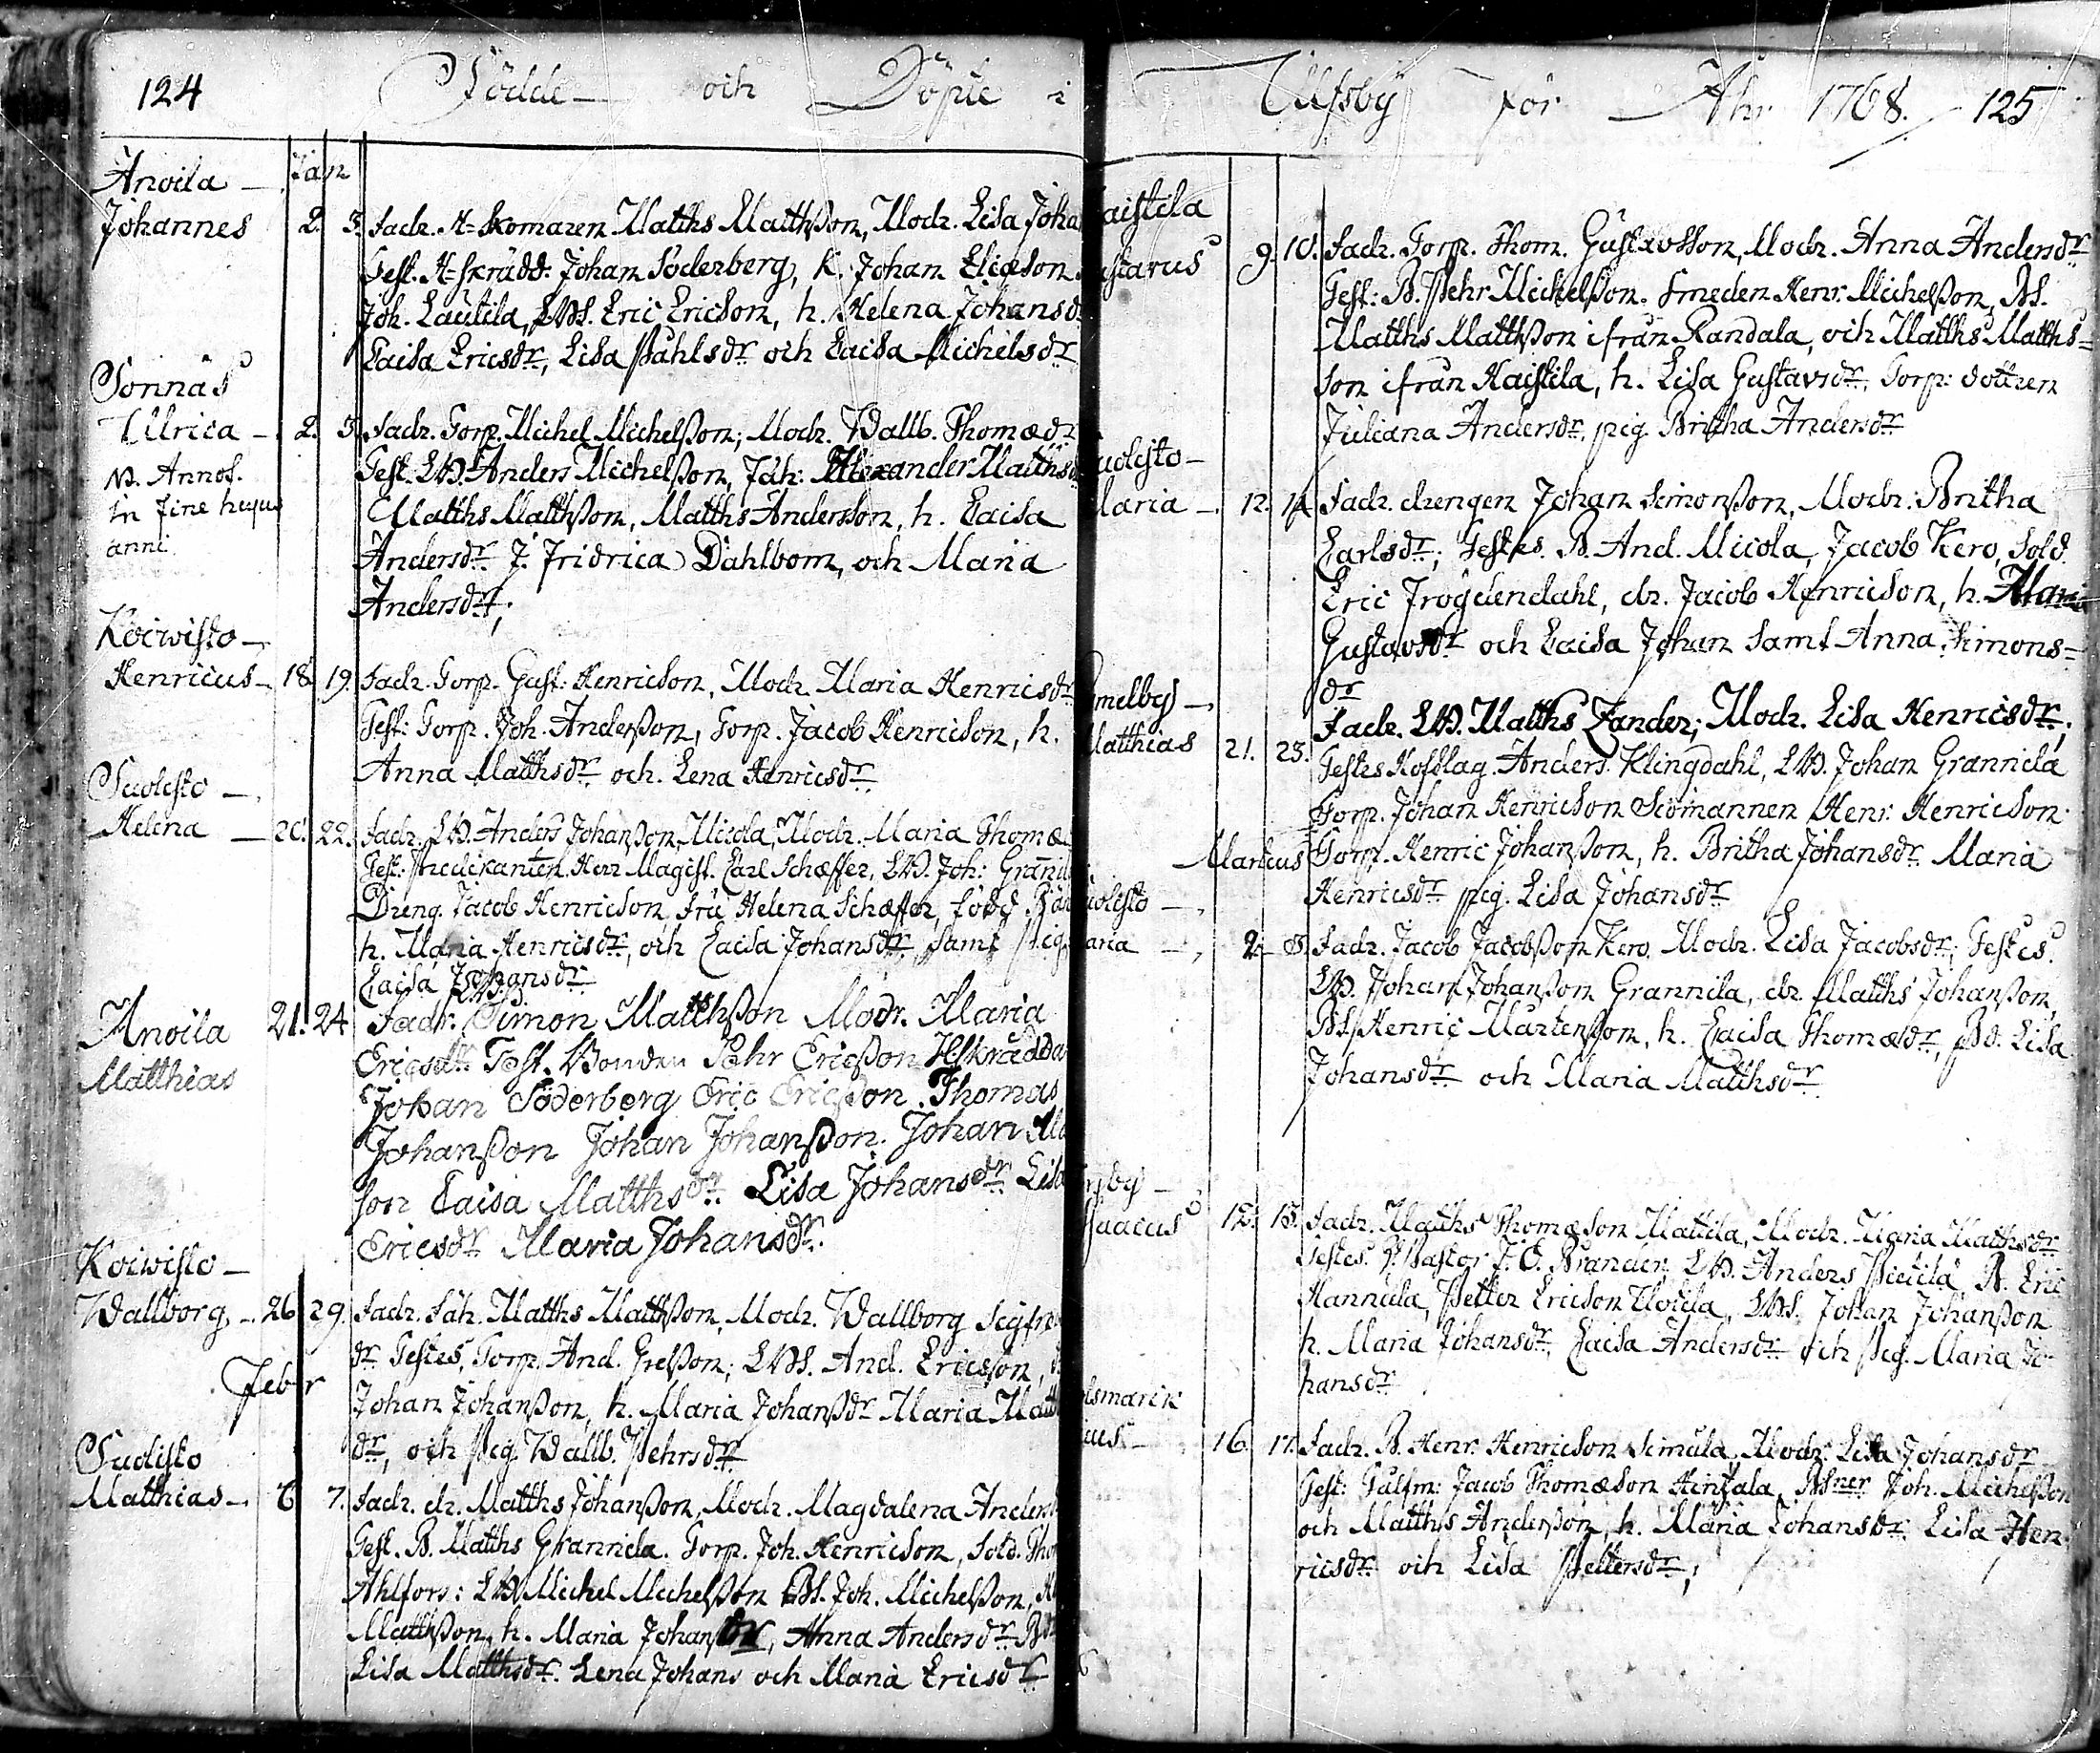 124 Födde och Döpte i
Anoila
Jan
Johannes 2. 3. Fadr. H=skomaren Matths Matthsson, Modr. Lisa Joha
Test. H=skrädd: Johan Söderberg, K. Johan Ericson
Joh. Lautila, LBS. Eric Ericson, h. Helena Johansd
Caisa Ericsdr, Lisa Påhlsdr och Caisa Michelsdr
Sonnäs
Ulrica 2. 3. Fadr. Torp. Michel Michelsson, Modr. Wallb. Thomædr
N. Annot. Test. LB. Anders Michelsson, Jäh: Alexander Matths
in fine hujus Matths Matthsson, Matths Andersson, h. Caisa
anni Andersdr J. Fridrica Dahlbom, och Maria
Andersdr;
Koiwisto
Henricus 18. 19. Fadr. Torp. Gust: Henricson, Modr. Maria Henricsdr
Test: Torp. Joh. Andersson, Torp. Jacob Henricson, h.
Anna Matthsdr och. Lena Henricsdr
Suolisto
Helena 20. 22. Fadr. LB. Anders Johansson Micola, Modr. Maria Thomæ
Test: Predikanten Herr Magist. Carl Schæffer, LB. Joh: Grannil
Dreng. Jacob Henricson Fru Helena Schæffer,
h. Maria Henricsdr, och Caisa Johansdr, samt Pig.
Caisa Johansdr
Anoila 21. 24 Fadr. Simon Matthsson Modr. Maria
Matthias Ericsdr Test. Bonden Pehr Ericsson H:skrädda
Johan Söderberg Eric Ericsson Thomas
Johansson Johan Johansson. Johan
son Caisa Matthsdr. Lisa Johansdr Lisa
Ericsdr Maria Johansdr.
Koiwisto
Wallborg 26 29. Fadr. Matths Matthsson, Modr. Wallborg Sigfr
dr Testes, Torp. And. Gresson; LBS. And. Ericsson,
Febr
Johan Johansson, h. Maria Johansdr Maria Matt
dr, och Pig. Wallb. Pehrsdr
Suolisto
Matthias 6 7. Fadr. dr. Matths Johansson, Modr. Magdalena Anders
Test. B. Matths Grannila. Torp. Joh. Henricson, Sold. Tho
Ahlfors: LB Michel Michelsson BS. Joh. Michelsson,
Matthsson, h. Maria Johansdr, Anna Andersdr
Lisa Matthsdr. Lena Johans och Maria Ericsdr
Ulfsby för Åhr 1768. 125
aistila
ustavus 9. 10. Fadr. Torp. Thom. Gustavsson, Modr. Anna Andersdr
Test: B. Pehr Michelsson. Smeden Henr. Michelsson, BS.
Matths Matthsson ifrån Randala, och Matths Matths=
son ifrån Kaistila, h. Lisa Gustavsdr, Torp: dottren
Juliana Andersdr, pig. Britha Andersdr
uolisto
aria 12. 14. Fadr. drengen Johan Simonsson, Modr: Britha
Carlsdr; Testes. B. And. Micola, Jacob Kero, Sold.
Eric Frögdendahl, dr. Jacob Henricson, h. Maria
Gustavsdr och Caisa Johan samt Anna Simons=
dr
melby
atthias 21. 23. Fadr. LB. Matths Zander; Modr. Lisa Henricsdr;
Testes Hofslag. Anders Klingdahl, LB. Johan Grannila
Torp. Johan Henricson Siömannen Henr: Henricson
Martius Torp. Henric Johansson, h. Britha Johansdr Maria
Henricsdr pig. Lisa Johansdr
uolisto
aria 2. 3. Fadr. Jacob Jacobsson Kero. Modr. Lisa Jacobsdr; Testes.
LB. Johan Johansson Grannila, dr. Matths Johansson,
BS. Henric Mårtensson, h. Caisa Thomædr, Bd. Lisa
Johansdr och Maria Matthsdr
by
saacus 12. 13. Fadr. Matths Thomæson Mattila, Modr. Maria Matthsdr
Testes. V. Pastor J. O. Brander. LB. Anders Pietilä, B. Eric
Hannula, Petter Ericson Uotila, LBS. Johan Johansson
h. Maria Johansdr, Caisa Andersdr och Pig. Maria Jo=
hansdr
lsmark
cus 16. 17. Fadr. B. Henr. Henricson Simula, Modr. Lisa Johansdr
Test: Gulfm: Jacob Thomæson Hintala, BSner Joh. Michelsson
och Matths Andersson, h. Maria Johansdr Lisa Hen
ricsdr och Lisa Pettersdr;